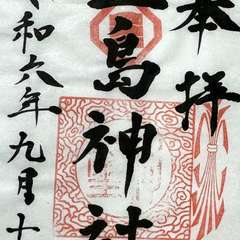 奉拝
島神社
令和六年九月十